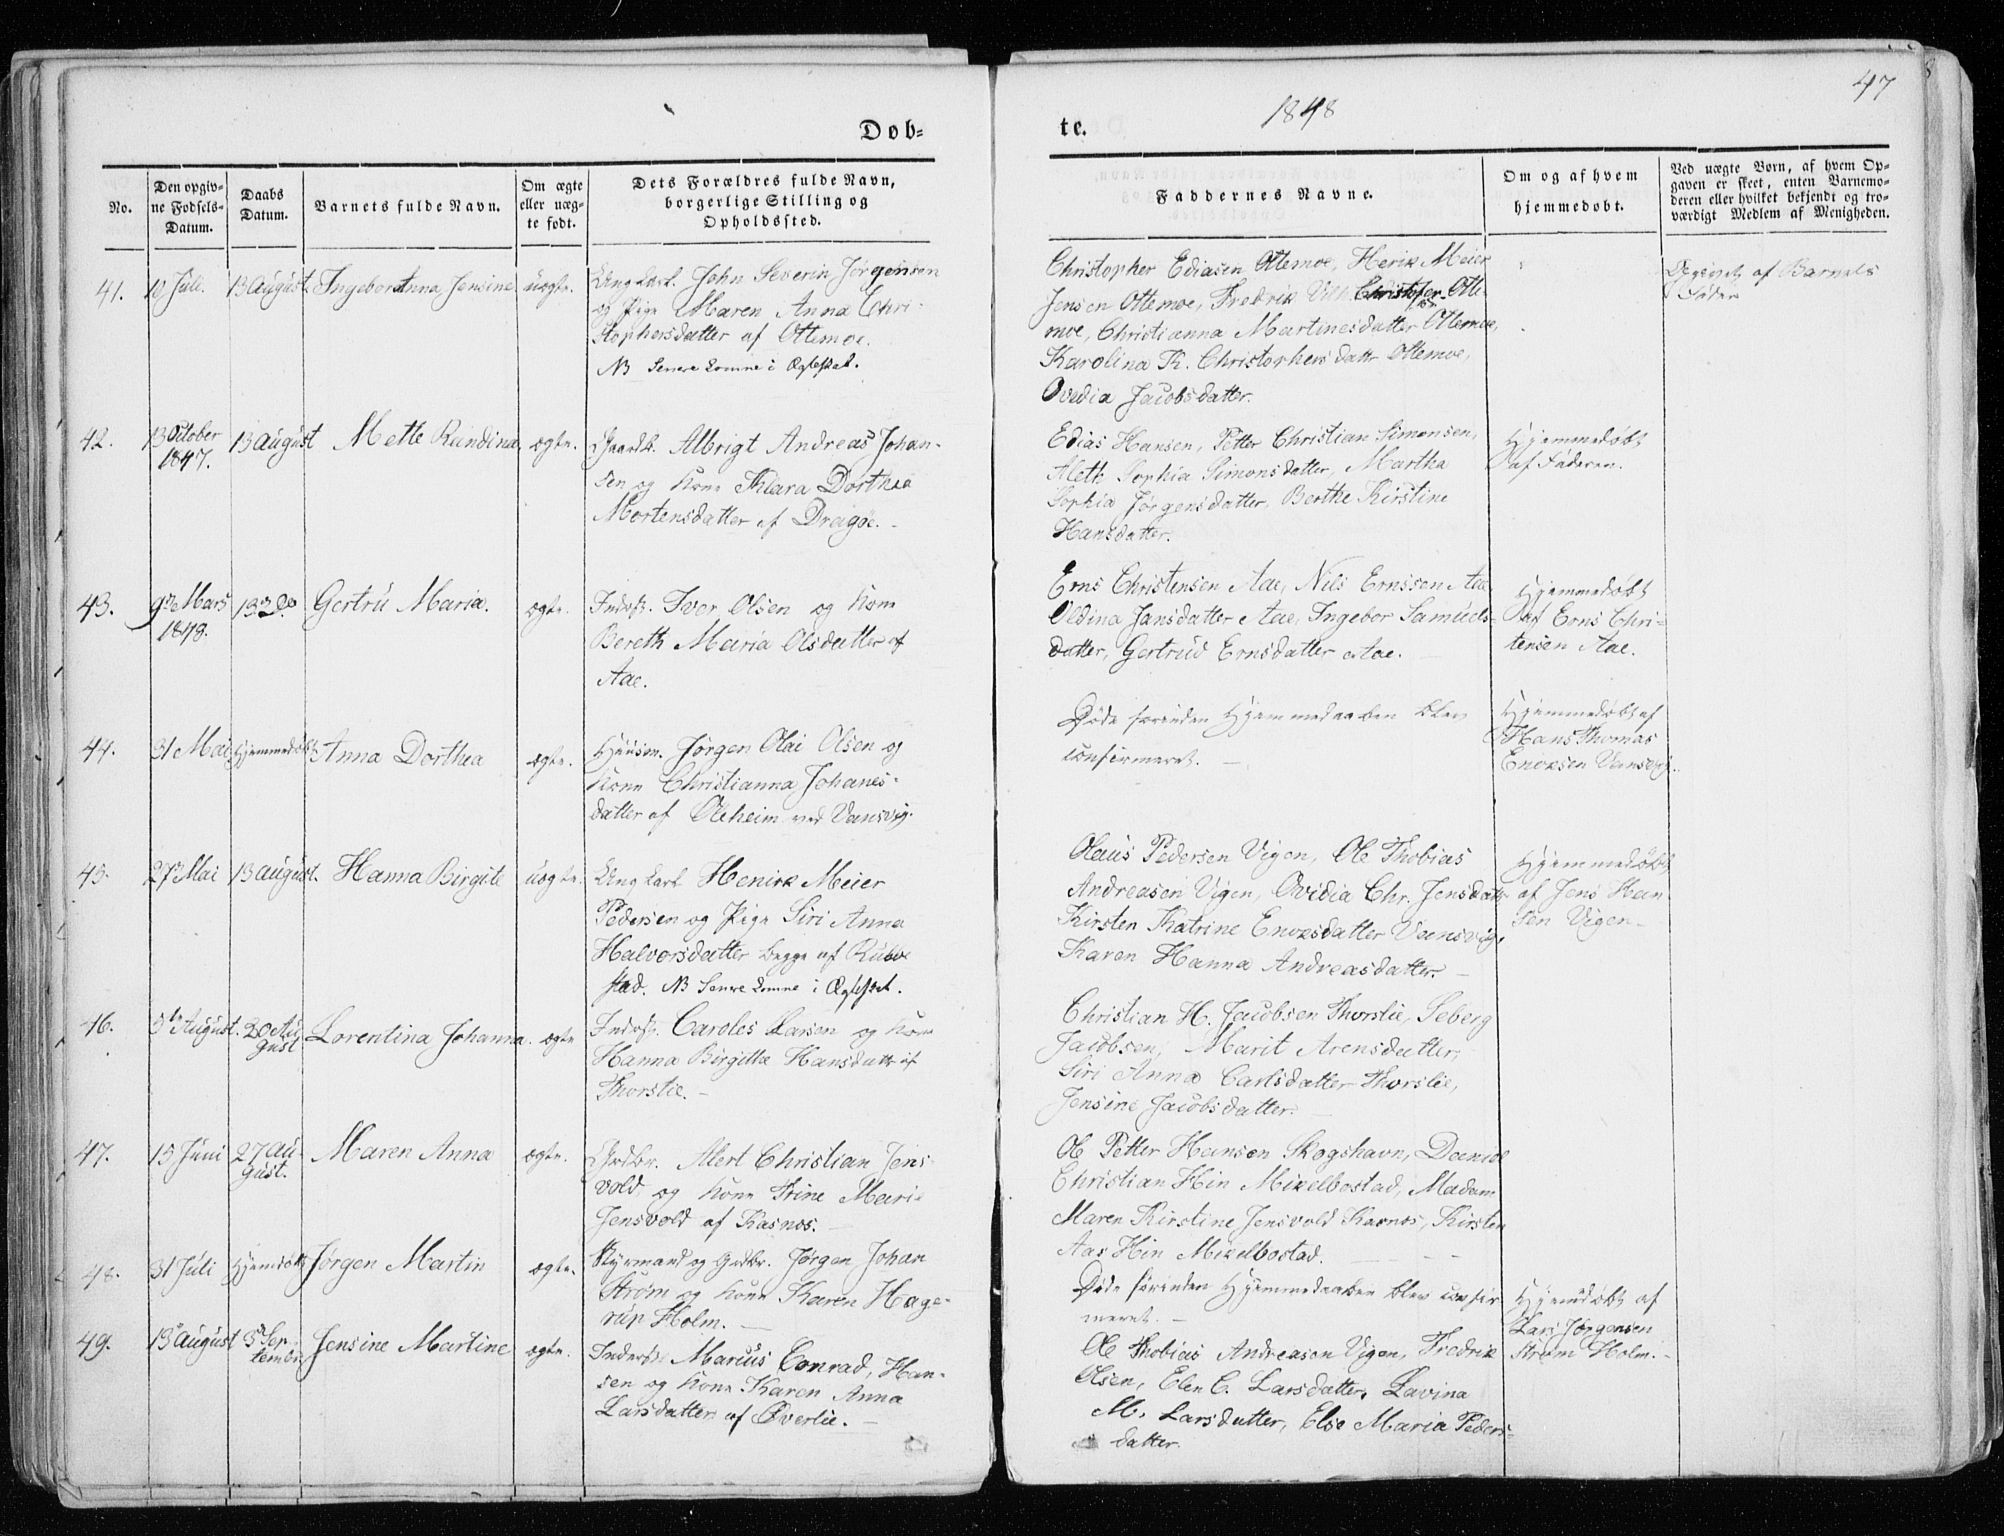 47
1848
Døb-
te.
No.
Den opgiv-
ne Fødsels-
Datum.
Daabs
Datum.
Barnets fulde Navn.
Om ægte
eller uæg-
te født.
Dets Forældres fulde Navn,
borgerlige Stilling og
Opholdssted.
Faddernes Navne.
Om og af hvem
hjemmedøbt.
Ved uægte Børn, af hvem Op-
gaven er skeet, enten Barnemo-
deren eller hvilket bekjendt og tro-
værdigt Medlem af Menigheden.
41.
10 Juli.
13 August.
Ingebor Anna Jensine
uægte.
Ung Karl. John Severin Jørgensen
og Pige Maren Anna Chri-
stophersdatter af Ottemoe.
NB Senere komne i Ægteskab.
Christopher Ediasen Ottemoe, Henrik Meier
Jensen Ottemoe, Fredrik Christofer Otte-
moe, Christianna Martinesdatter Ottemoe,
Karolina K. Christophersdattr Ottemoe,
Ovedia Jacobsdatter.
Opgivet af Barnets
Fader
42.
13 October
1847.
13 August
Mette Rundina
ægte.
Gaardb. Albrigt Andreas Johan-
sen og Kone Klara Dorthea
Mortensdatter af Dragøe.
Edias Hansen, Petter Christian Simonsen,
Aleth Sophia Simonsdatter, Martha
Sophia Jørgensdatter, Berthe Kirstine
Hansdatter.
Hjemmedøbt
af Faderen.
43.
9de Mars
1848.
13 do
Gertru Maria.
ægte.
Inderst. Iver Olsen og Kone
Bereth Maria Olsdatter af
Aae.
Erns Christensen Aae, Nils Ernssen Aae
Oldina Jansdatter Aae, Ingebor Samuels-
datter, Gertrud Ernsdatter Aae.
Hjemmedøbt
af Erns Chri-
tensen Aae.
44.
31 Mai
Hjemmedøbt
Anna Dorthea
ægte.
Huusm. Jørgen Olai Olsen og
Kone Christianna Johanes-
datter af Oleheim ved Vansvig.
Døde forinden Hjemmedaaben blev
confirmeret.
Hjemmedøbt af
Hans Thomas
Enoksen Vansvig.
45.
27de Mai
13 August.
Hanna Birgite
uægte.
Ung Karl Henirk Meier
Pedersen og Pige Siri Anna
Halvorsdatter begge af Rubbe
stad. NB Senere komne i Ægteskab.
Olaus Pedersen Vigen, Ole Thobias
Andreasen Vigen, Ovidia Chr. Jensdatr
Kirsten Katrine Enoksdatter Vansvig,
Karen Hanna Andreasdatter.
Hjemmedøbt
af Jens Han-
sen Vigen.
46.
5te August.
20 Au-
gust
Lorentina Johanna.
ægte
Inderst. Caroles Larsen og Kone
Hanna Birgitta Hansdattr af
Thorslie.
Christian H. Jacobsen Thorslie, Seberg
Jacobsen, Marit Arensdatter,
Siri Anna Carlsdatter Thorslie,
Jensine Jacobsdatter.
47.
15 Juni
27 Au-
gust.
Maren Anna
ægte.
Grdbr. Alert Christian Jens-
vold og Kone Trine Marie
Jensvold af Kasnæs.
Ole Petter Hansen Skogshavn, Daniel
Christian Hin Mikelbostad, Madam
Maren Kirstine Jensvold Kasnæs, Kirsten
Aas Hin Mikelbostad.
48.
31 Juli
Hjemdøbt
Jørgen Martin
ægte.
Styrmand og Grdbr. Jørgen Johan
Strøm og Kone Karen Hage-
rup Holm.
Døde forinden Hjemmedaaben blev confir
meret.
Hjemdøbt af
Lars Jørgensen
Strøm Holm.
49.
13de August
3de Sep-
tembr.
Jensine Martine
ægte.
Inderst. Marcus Conrad, Han-
sen og Kone Karen Anna
Larsdatter af Øverlie.
Ole Thobias Andreasen Vigen, Fredrik
Olsen, Elen C. Larsdatter, Lavina
M. Larsdatter, Else Maria Peders-
datter.